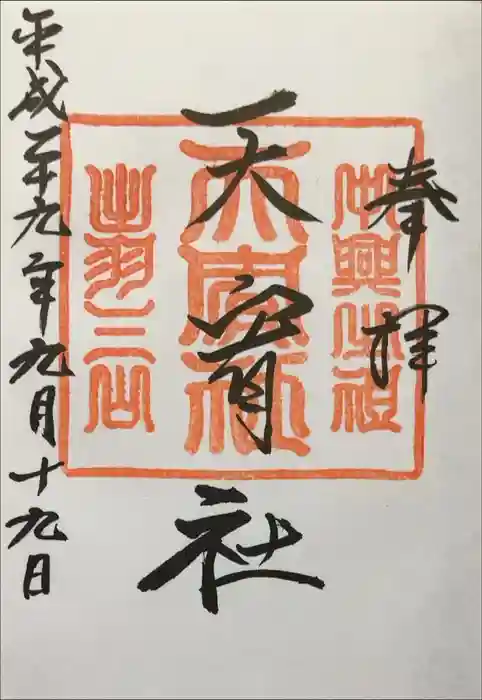 奉拝
天宥社
平成二十九年九月十九日
天宥社
出羽三山